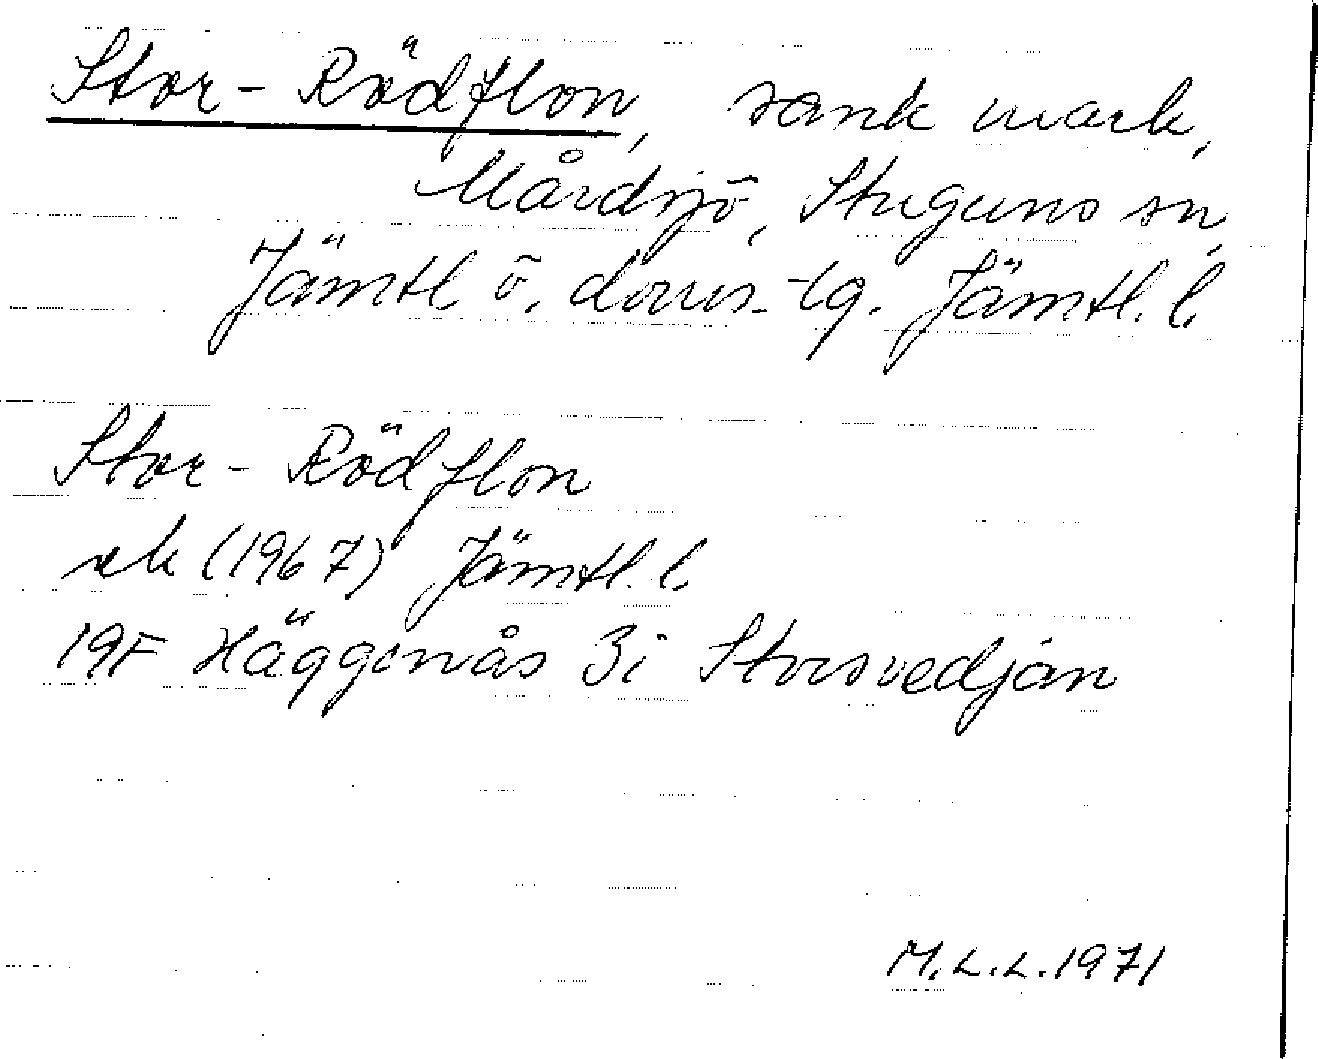 Stor-Rödflon, sank mark,
Mårdsjö, Stuguns sn,
Jämtl. ö. doms-tg. Jämtl. l.
Stor-Rödflon
ek (1967) Jämtl. l.
19F Häggenås 3i Storsvedjan
M.L.L. 1971